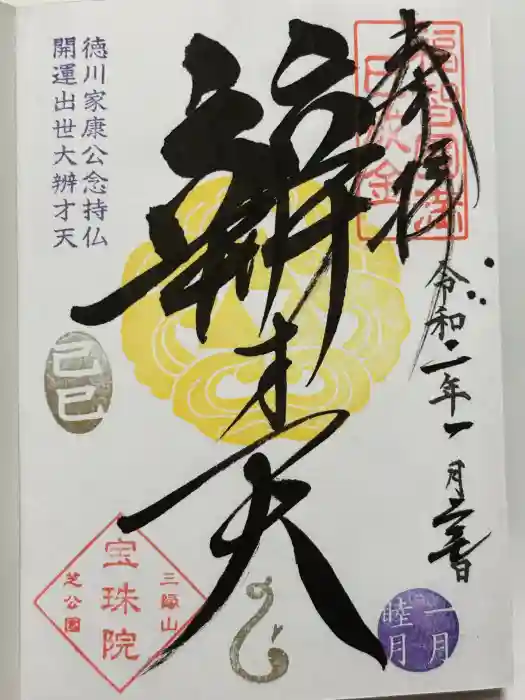 奉拝
福智圓満
巳成金
令和二年一月
日
辨才天
徳川家康公念持仏
開運出世大辨才天
己巳
三縁山
宝珠院
芝公園
一月
睦月